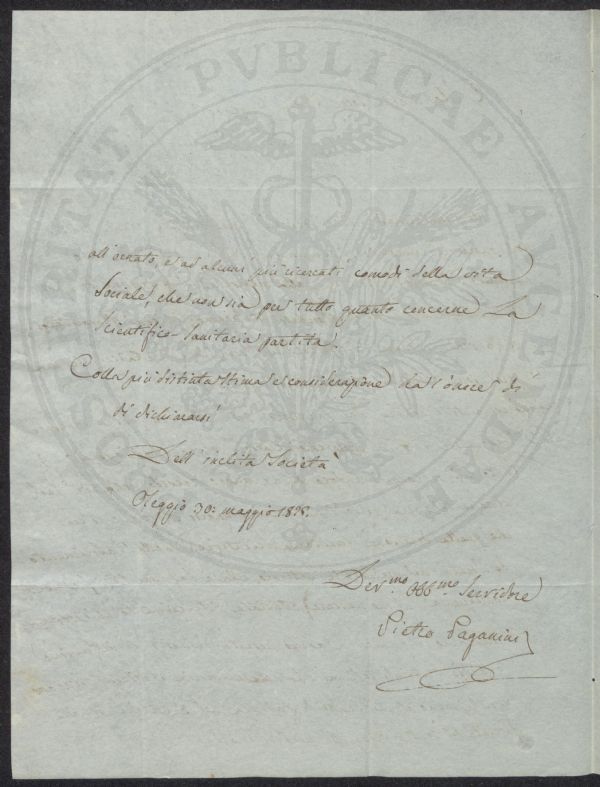 all'ornato, e ad alcuni più ricercati comodi della vita
Sociale, che non sia per tutto quanto concerne La
Scientifico-Sanitaria partita.
Colla più distinta stima e considerazione ha l'onore di
di dichiararsi
Dell'inclita Società
Oleggio 30: maggio 1838.
Dev.mo Obb.mo Servidore
Pietro Paganini